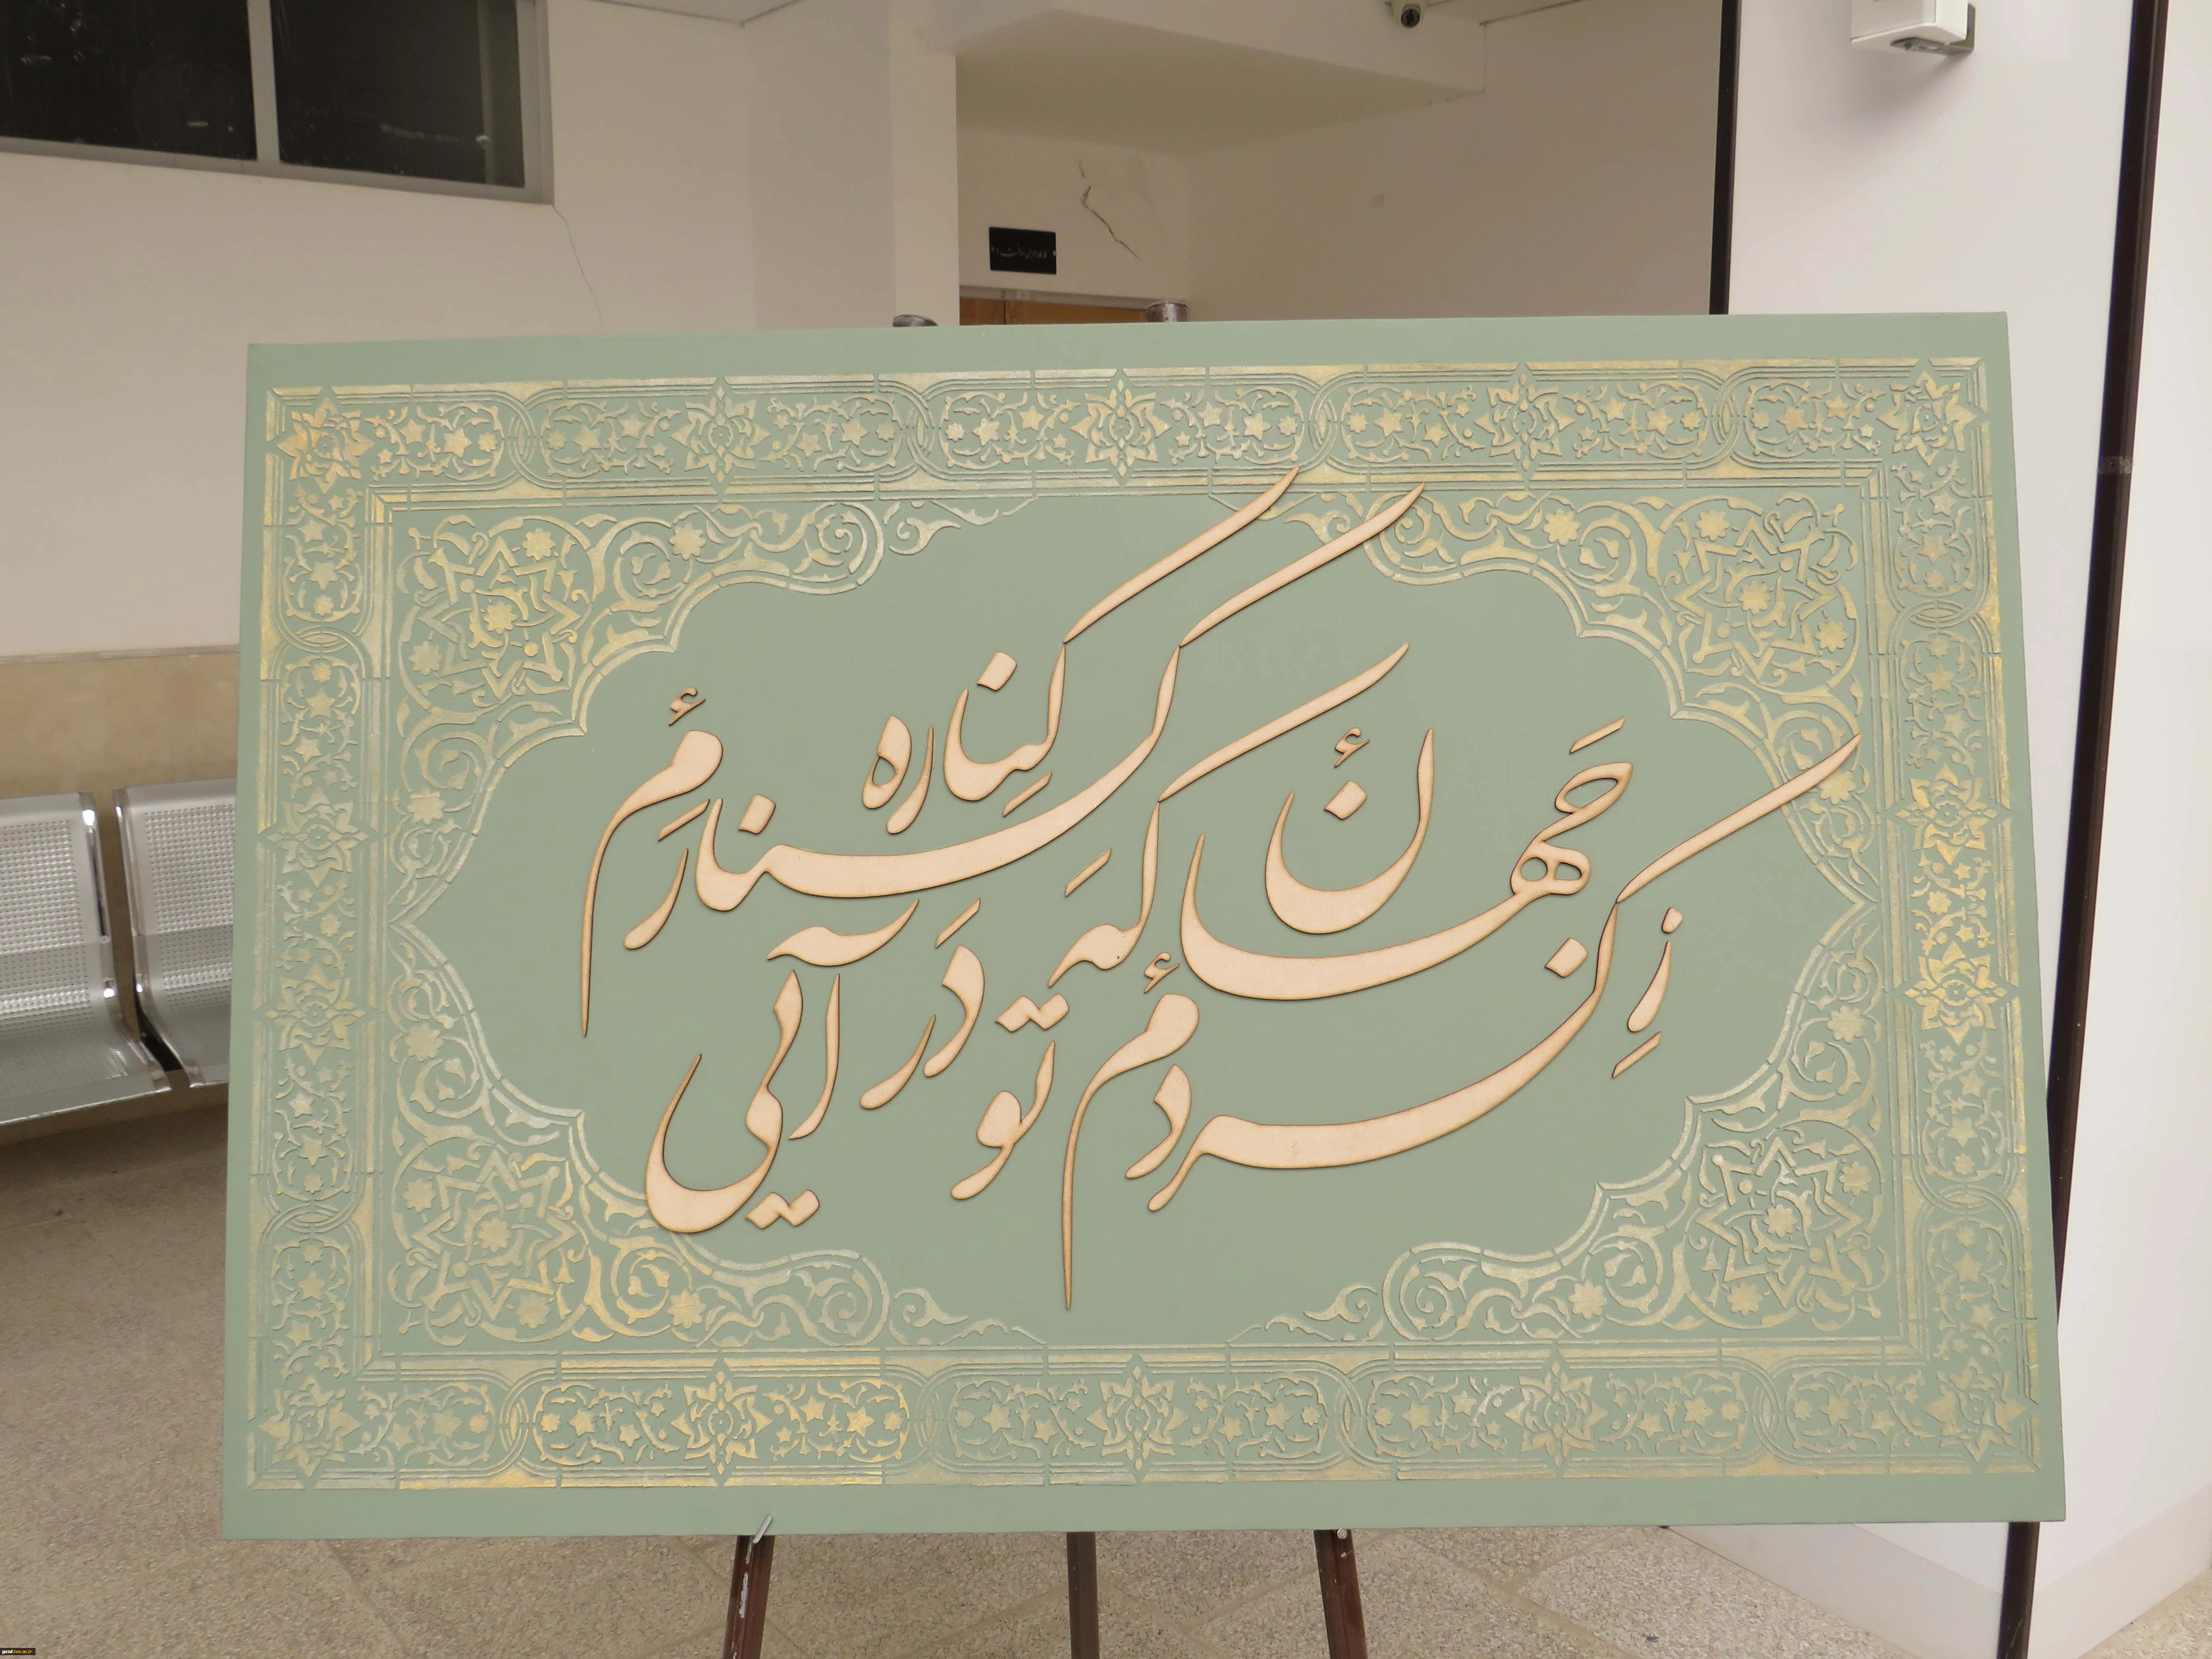 زِ جَهان کِناره کردم که تو دَر کنارم آیی